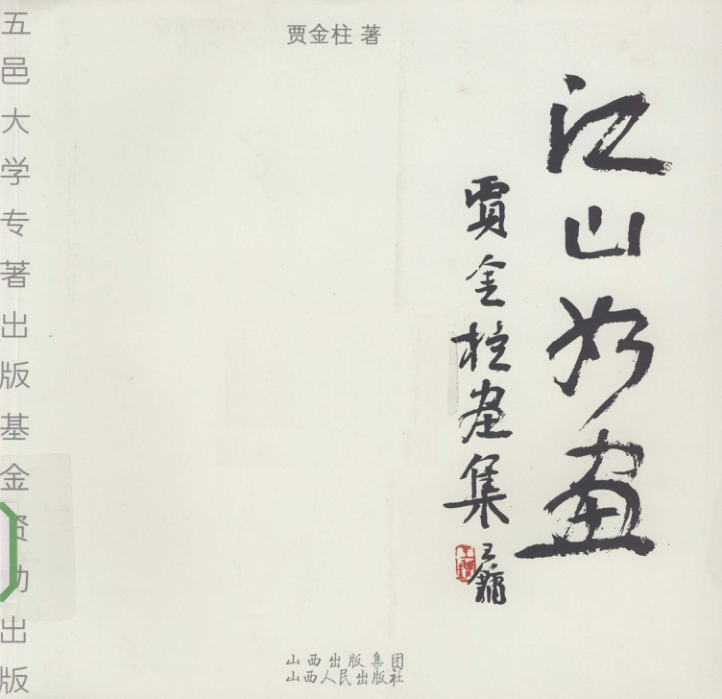 贾金柱 著
江山如画
贾金柱画集
王镛
五邑大学专著出版基金资助出版
山西出版集团
山西人民出版社